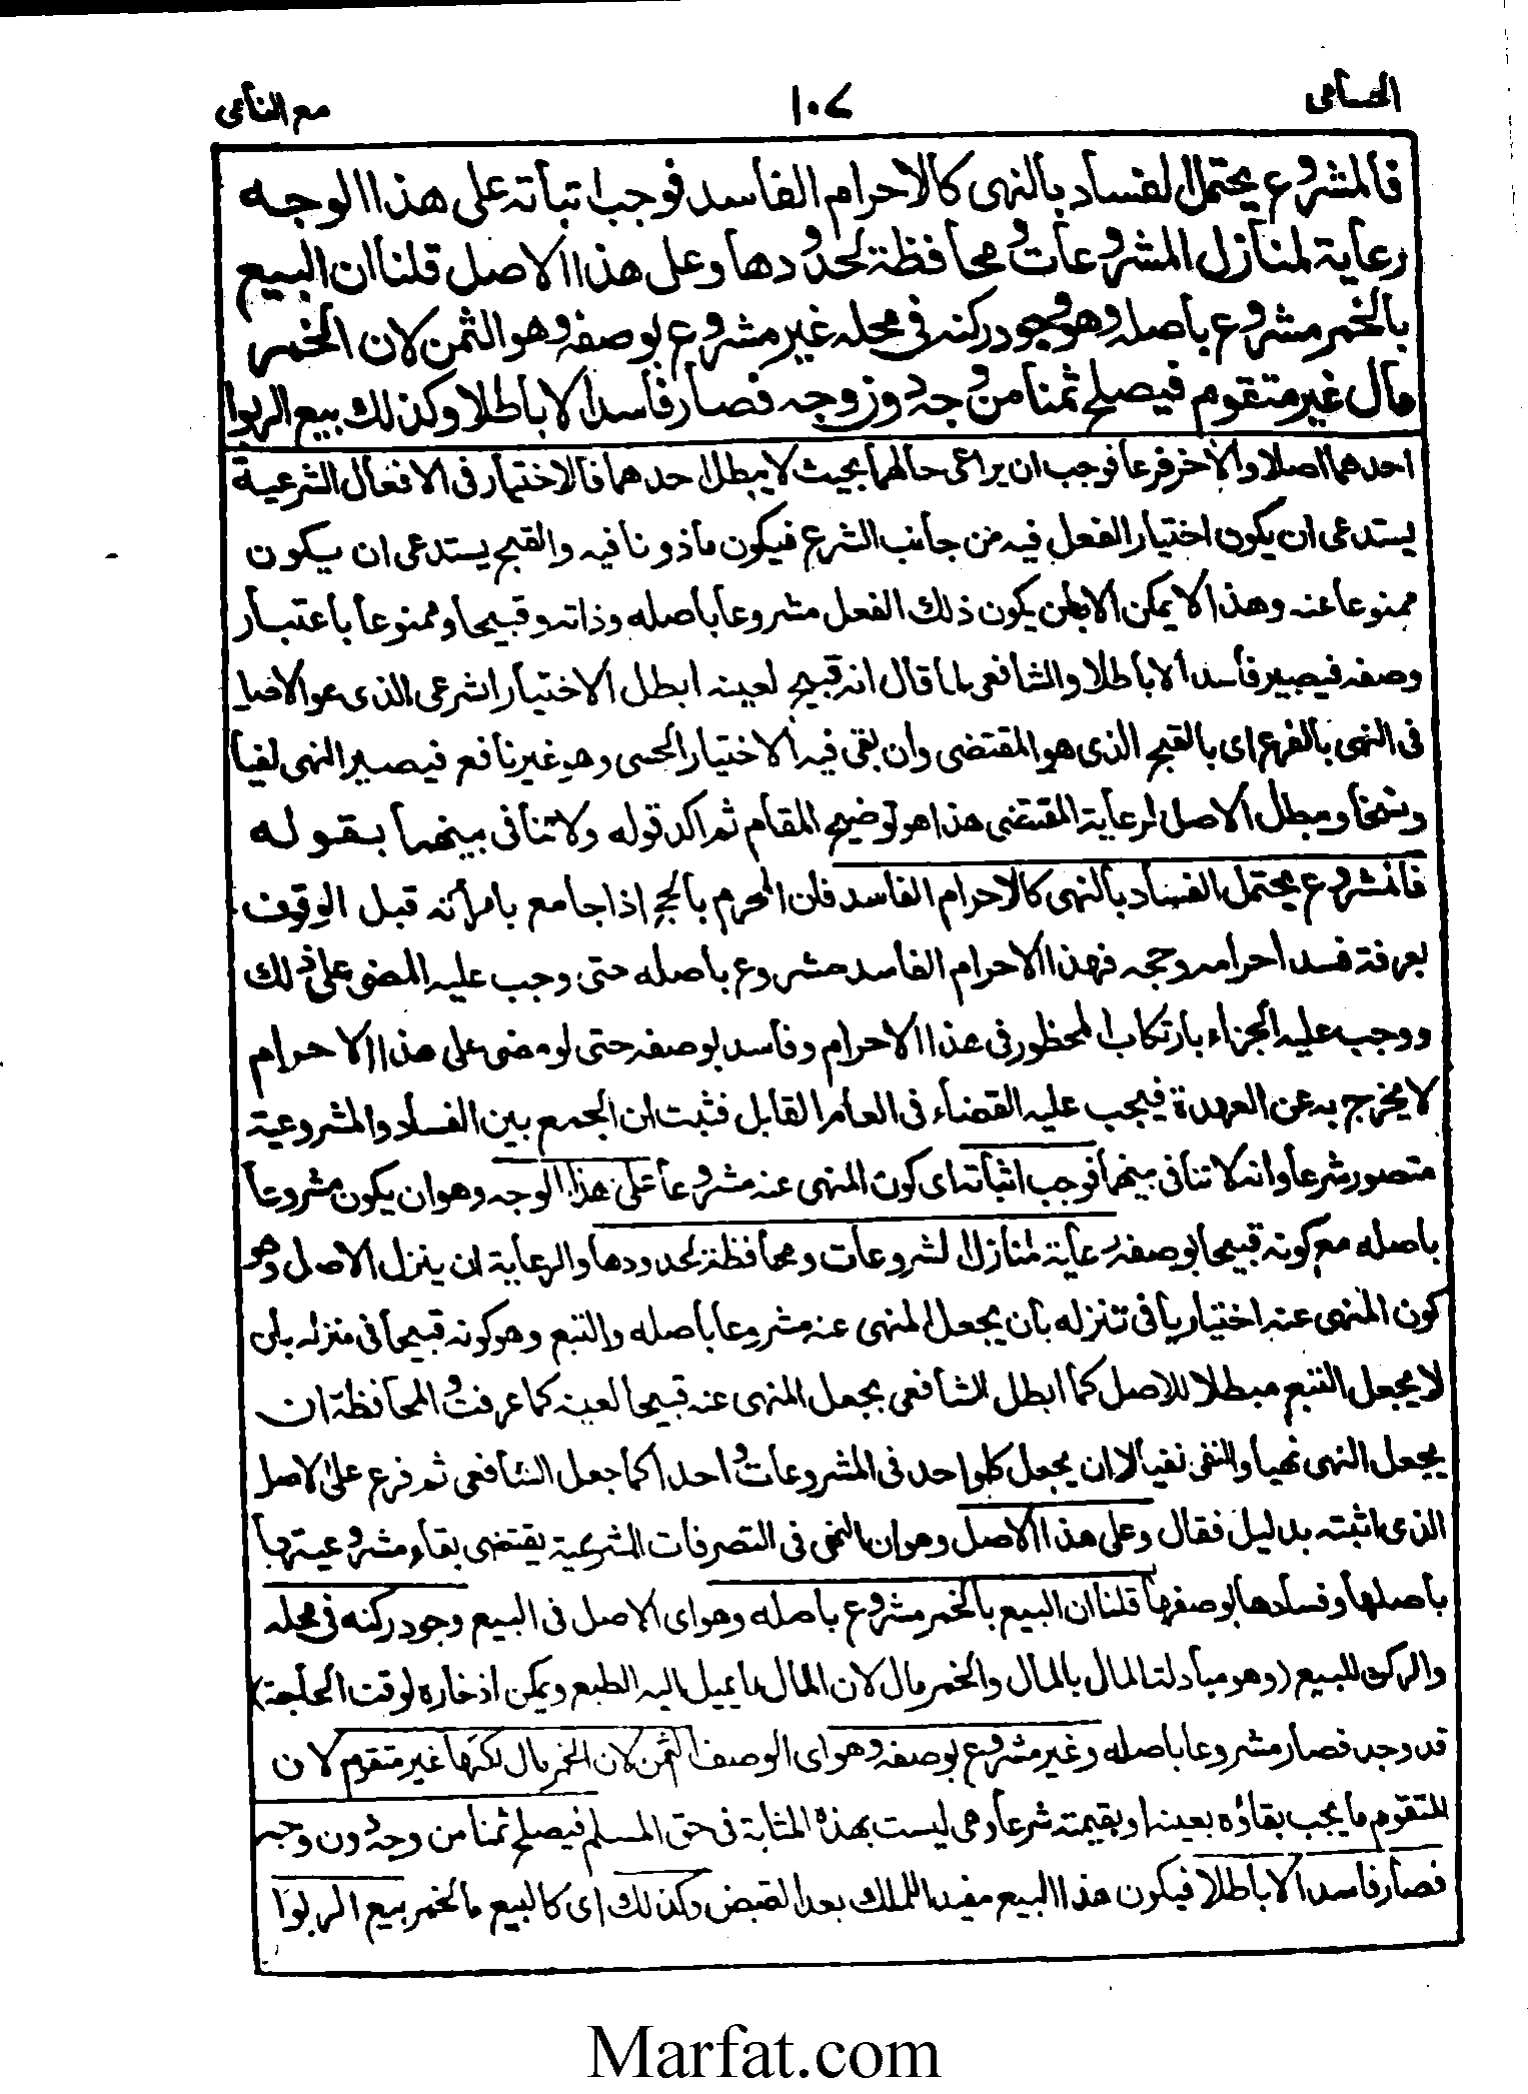 الحسامى ١٠٧ مع النامى
فالمشروع يحتمل الفساد بالنهى كالاحرام الفاسد فوجب اثباته على هذا الوجه
رعاية لمنازل المشروعات ومحافظة لحدودها وعلى هذا الاصل قلنا ان البيع
بالخمر مشروع باصله وهو وجود ركنه فى محله غير مشروع لوصفه وهو الثمن لان الخمر
مال غير متقوم فيصلح ثمنا من وجه دون وجه فصار فاسدا لا باطلا وكذلك بيع الربوا
احدهما اصلا والآخر فرعا فوجب ان يراعى حالهما بحيث لا يبطل احدهما فالاختيار فى الافعال الشرعية
يستدعى ان يكون اختيار الفعل فيه من جانب الشرع فيكون ماذونا فيه والقبح يستدعى ان يكون
ممنوعا عنه وهذا لا يمكن الا بان يكون ذلك الفعل مشروعا باصله وذاته وقبيحا وممنوعا باعتبار
وصفه فيصير فاسدا لا باطلا والشافعى لما قال انه قبيح لعينه ابطل الاختيار الشرعى الذى هو الاصل
فى النهى بالفرع اى بالقبح الذى هو المقتضى وان بقى فيه الاختيار الحسى وهو غير نافع فيصير النهى نفيا
ونسخا ومبطل الاصل لرعاية المقتضى هذا هو توضيح المقام ثم اكد قوله ولا تنافى بينهما بقوله
فالمشروع يحتمل الفساد بالنهى كالاحرام الفاسد فان المحرم بالحج اذا جامع بامرأته قبل الوقوف
بعرفة فسد احرامه وحجه فهذا الاحرام الفاسد مشروع باصله حتى وجب عليه المضى على ذلك
ووجب عليه الجزاء بارتكاب المحظور فى هذا الاحرام وفاسد بوصفه حتى لو مضى على هذا الاحرام
لا يخرج به عن العهدة فيجب عليه القضاء فى العام القابل فثبت ان الجمع بين الفساد والمشروعية
متصور شرعا وانه لا تنافى بينهما فوجب اثباته اى كون المنهى عنه مشروعا على هذا الوجه وهو ان يكون مشروعا
باصله مع كونه قبيحا بوصفه رعاية لمنازل المشروعات ومحافظة لحدودها والرعاية ان ينزل الاصل وهو
كون المنهى عنه اختياريا فى تنزله بان يجعل المنهى عنه مشروعا باصله والتبع وهو كونه قبيحا فى منزله بان
لا يجعل التبع مبطلا للاصل كما ابطل الشافعى بجعل المنهى عنه قبيحا لعينه كما عرفت والمحافظة ان
يجعل النهى نهيا والنفى نفيا لا ان يجعل كلواحد فى المشروعات واحدا كما جعل الشافعى ثم فرع على الاصل
الذى اثبته بدليل فقال وعلى هذا الاصل وهو ان النهى فى التصرفات الشرعية يقتضى بقاء مشروعيتها
باصلها وفسادها بوصفها قلنا ان البيع بالخمر مشروع باصله وهو اى الاصل فى البيع وجود ركنه فى محله
والركن للبيع (وهو مبادلة المال بالمال والخمر مال لان المال ما يميل اليه الطبع ويمكن اذخاره لوقت الحاجة)
قد وجد فصار مشروعا باصله وغير مشروع بوصفه وهو اى الوصف الثمن لان الخمر مال لكنها غير متقوم لان
المتقوم ما يجب بقاؤه بعينه او بقيمته شرعا وهى ليست بهذه المثابة فى حق المسلم فيصلح ثمنا من وجه دون وجه
فصار فاسدا لا باطلا فيكون هذا البيع مفيدا للملك بعد القبض وكذلك اى كالبيع بالخمر بيع الربوا
Marfat.com